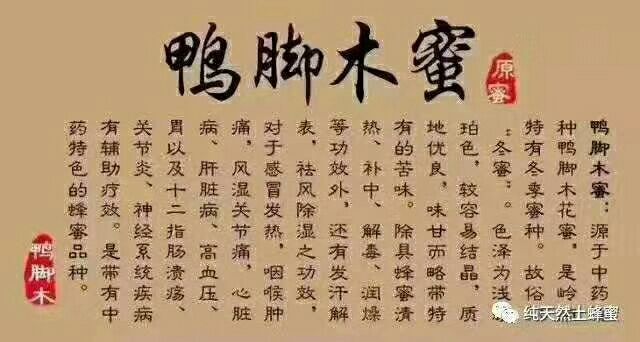 鸭脚木蜜
原蜜
鸭脚木蜜：源于中药
种鸭脚木花蜜，是岭
特有冬季蜜种。故俗
“冬蜜”。色泽为浅
珀色，较容易结晶，质
地优良，味甘而略带特
有的苦味。除具蜂蜜清
热、补中、解毒、润燥
等功效外，还有发汗解
表，祛风除湿之功效，
对于感冒发热，咽喉肿
痛，风湿关节痛，心脏
病、肝脏病、高血压、
胃以及十二指肠溃疡、
关节炎、神经系统疾病
有辅助疗效。是带有中
药特色的蜂蜜品种。
鸭脚木
纯天然土蜂蜜